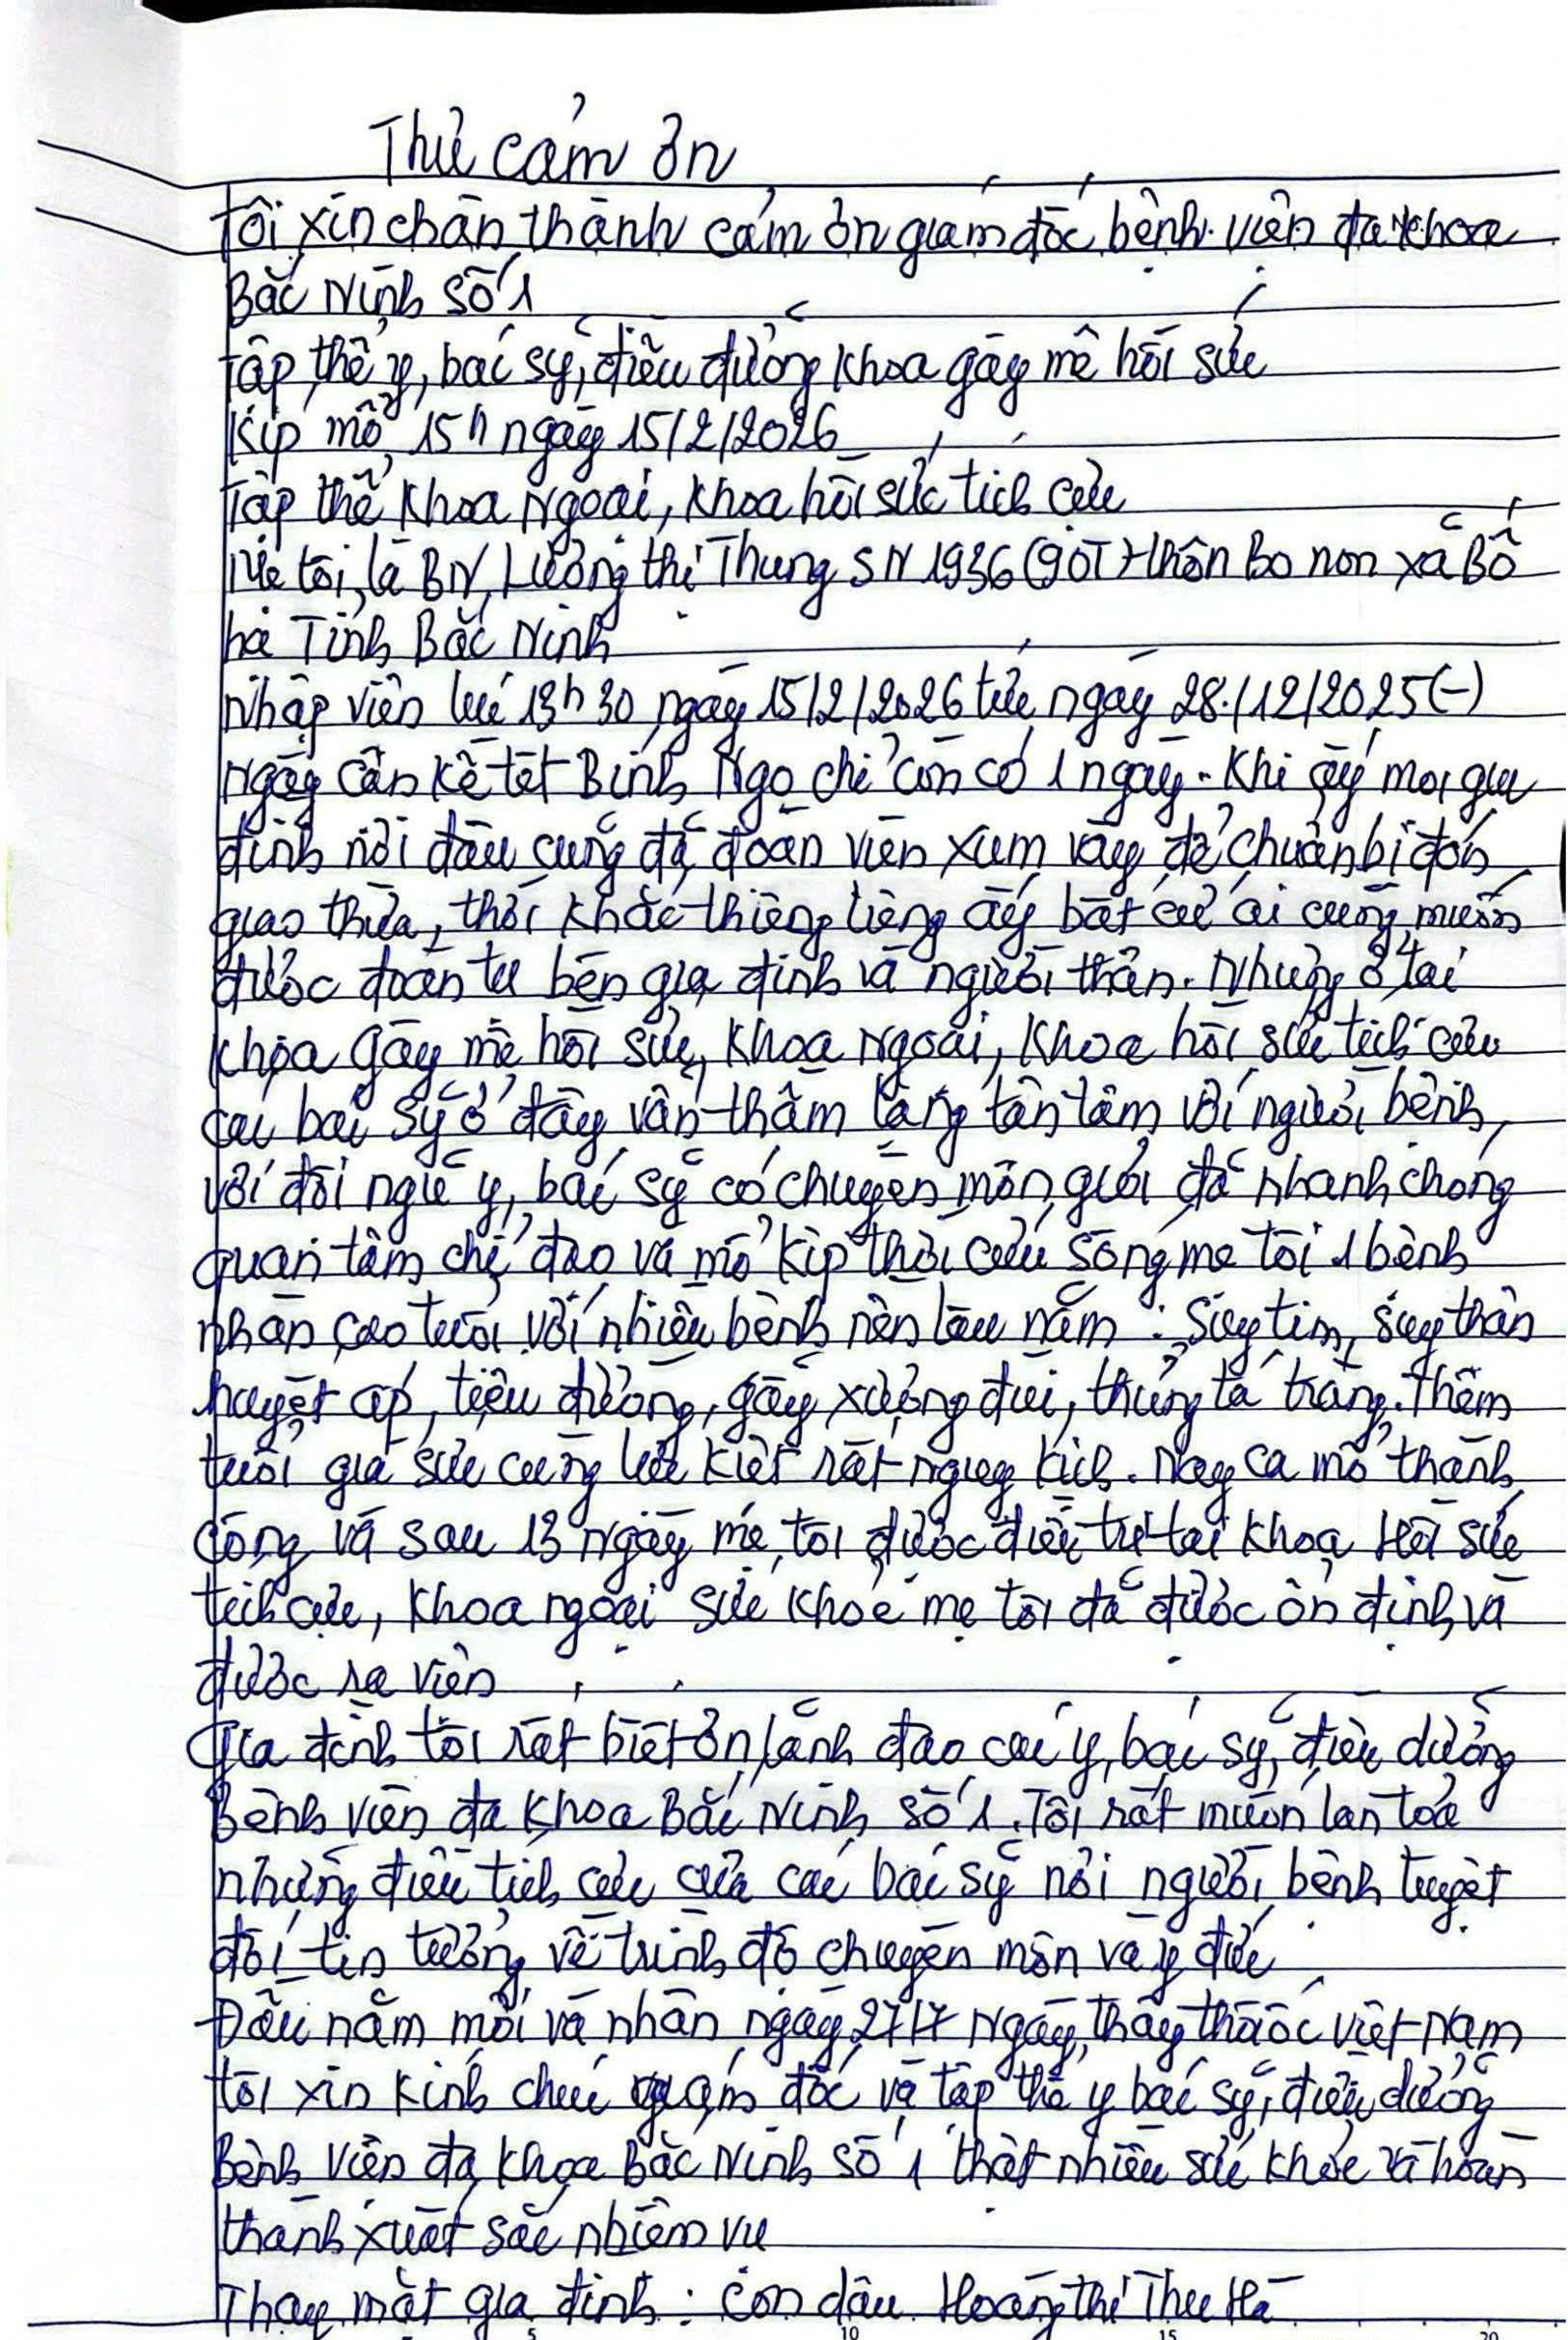 Thư cảm ơn
Tôi xin chân thành cảm ơn giám đốc bệnh viện đa khoa
Bắc Ninh số 1
Tập thể y, bác sỹ, điều dưỡng khoa gây mê hồi sức
Kíp mổ 15h ngày 15/2/2026
Tập thể khoa Ngoại, khoa hồi sức tích cực
Mẹ tôi là BN, Lương thị Thung SN 1936 (90T) thôn Bo non xã Bố
hạ Tỉnh Bắc Ninh
Nhập viện lúc 13h30 ngày 15/2/2026 tức ngày 28/12/2025 (-)
Ngày cận kề tết Bính Ngọ chỉ còn có 1 ngày. Khi ấy mọi gia
đình nơi đâu cũng đã đoàn viên xum vầy để chuẩn bị đón
giao thừa, thời khắc thiêng liêng ấy bất cứ ai cũng muốn
được đoàn tụ bên gia đình và người thân. Nhưng ở tại
khoa Gây mê hồi sức, khoa Ngoại, khoa hồi sức tích cực
các bác sỹ ở đây vẫn thầm lặng tận tâm với người bệnh,
với đội ngũ y, bác sỹ có chuyên môn giỏi đã nhanh chóng
quan tâm chỉ đạo và mổ kịp thời cứu sống mẹ tôi 1 bệnh
nhân cao tuổi với nhiều bệnh nền lâu năm: Suy tim, suy thận
huyết áp, tiểu đường, gãy xương đùi, thủng tá tràng. Thêm
tuổi già sức cùng lực kiệt rất nguy kịch. Nay ca mổ thành
công và sau 13 ngày mẹ tôi được điều trị tại khoa Hồi sức
tích cực, khoa ngoại sức khoẻ mẹ tôi đã được ổn định và
được ra viện
Gia đình tôi rất biết ơn lãnh đạo các y, bác sỹ, điều dưỡng
Bệnh viện đa khoa Bắc Ninh số 1. Tôi rất muốn lan toả
những điều tích cực của các bác sỹ nơi người bệnh tuyệt
đối tin tưởng về trình độ chuyên môn và y đức
Đầu năm mới và nhân ngày 27/2 Ngày thầy thuốc Việt Nam
tôi xin kính chúc giám đốc và tập thể y bác sỹ, điều dưỡng
Bệnh viện đa khoa Bắc Ninh số 1 thật nhiều sức khoẻ và hoàn
thành xuất sắc nhiệm vụ
Thay mặt gia đình: con dâu Hoàng thị Thu Hà
5 10 15 20